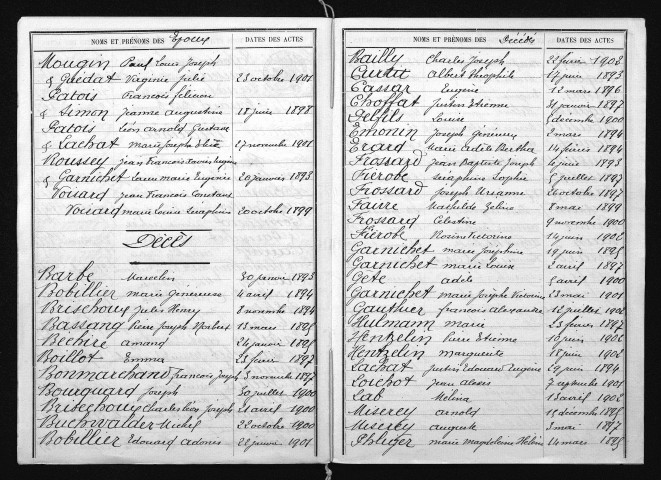 NOMS ET PRÉNOMS DES Epoux DATES DES ACTES
Mougin Paul Louis Joseph
& Guédat Virginie Julie 23 octobre 1901
Patois François
& Simon Jeanne Augustine 18 juin 1898
Patois Léon Arnold Gustave
& Lachat Marie Joseph 27 novembre 1901
Roussey Jean François Xavier
& Garnichet Laure Marie Eugénie 20 janvier 1893
Voisard Jean François Constant
Voisard Marie Louise Séraphine 20 octobre 1899
Décès
Barbe Marcelin 30 janvier 1893
Bobillier Marie Généreuse 4 avril 1894
Brischoux Jules Henry 8 novembre 1894
Bassang Pierre Joseph Norbert 13 mars 1895
Béchire Amand 24 janvier 1895
Boillot Emma 23 février 1897
Bonmarchand François Joseph 3 novembre 1897
Bourquard Joseph 30 juillet 1900
Brisechoux Charles Léon Joseph 21 avril 1900
Buchwalder Michel 22 octobre 1900
Bobillier Edouard Adonis 22 janvier 1901
NOMS ET PRÉNOMS DES Décédés DATES DES ACTES
Bailly Charles Joseph 22 février 1902
Albert Théophile 17 juin 1893
Cassar Eugène 12 mars 1896
Choffat Justin Etienne 31 janvier 1897
Delfils Louise décembre 1900
Emonin Joseph Généreux 2 mars 1894
Erard Marie Berthe 14 février 1894
Frossard Jean Baptiste Joseph 1893
Fiérobe Séraphine Sophie 5 juillet 1897
Frossard Joseph 24 octobre 1897
Faure Mathilde Zeline 8 mai 1899
Frossard Célestine 9 novembre 1900
Fiérobe Rosine Victorine 14 juin 1902
Garnichet Marie Joséphine 19 juin 1895
Garnichet Marie Louise 2 avril 1897
Gête Adèle 5 avril 1900
Garnichet Marie Josèphe Victorine 23 mai 1901
Gauthier François Alexandre 12 juillet 1902
Hulmann Marie 23 février 1897
Hentzelin Pierre Etienne 10 juin 1902
Hentzelin Marguerite 18 juin 1902
Lachat Justin Edouard Eugène 29 juin 1894
Loichot Jean Alexis 7 septembre 1901
Lab Mélina 15 avril 1902
Miserey Arnold 15 décembre 1895
Miserey Auguste 3 mai 1897
Pfliger Marie Magdeleine Hélène 14 mars 1895